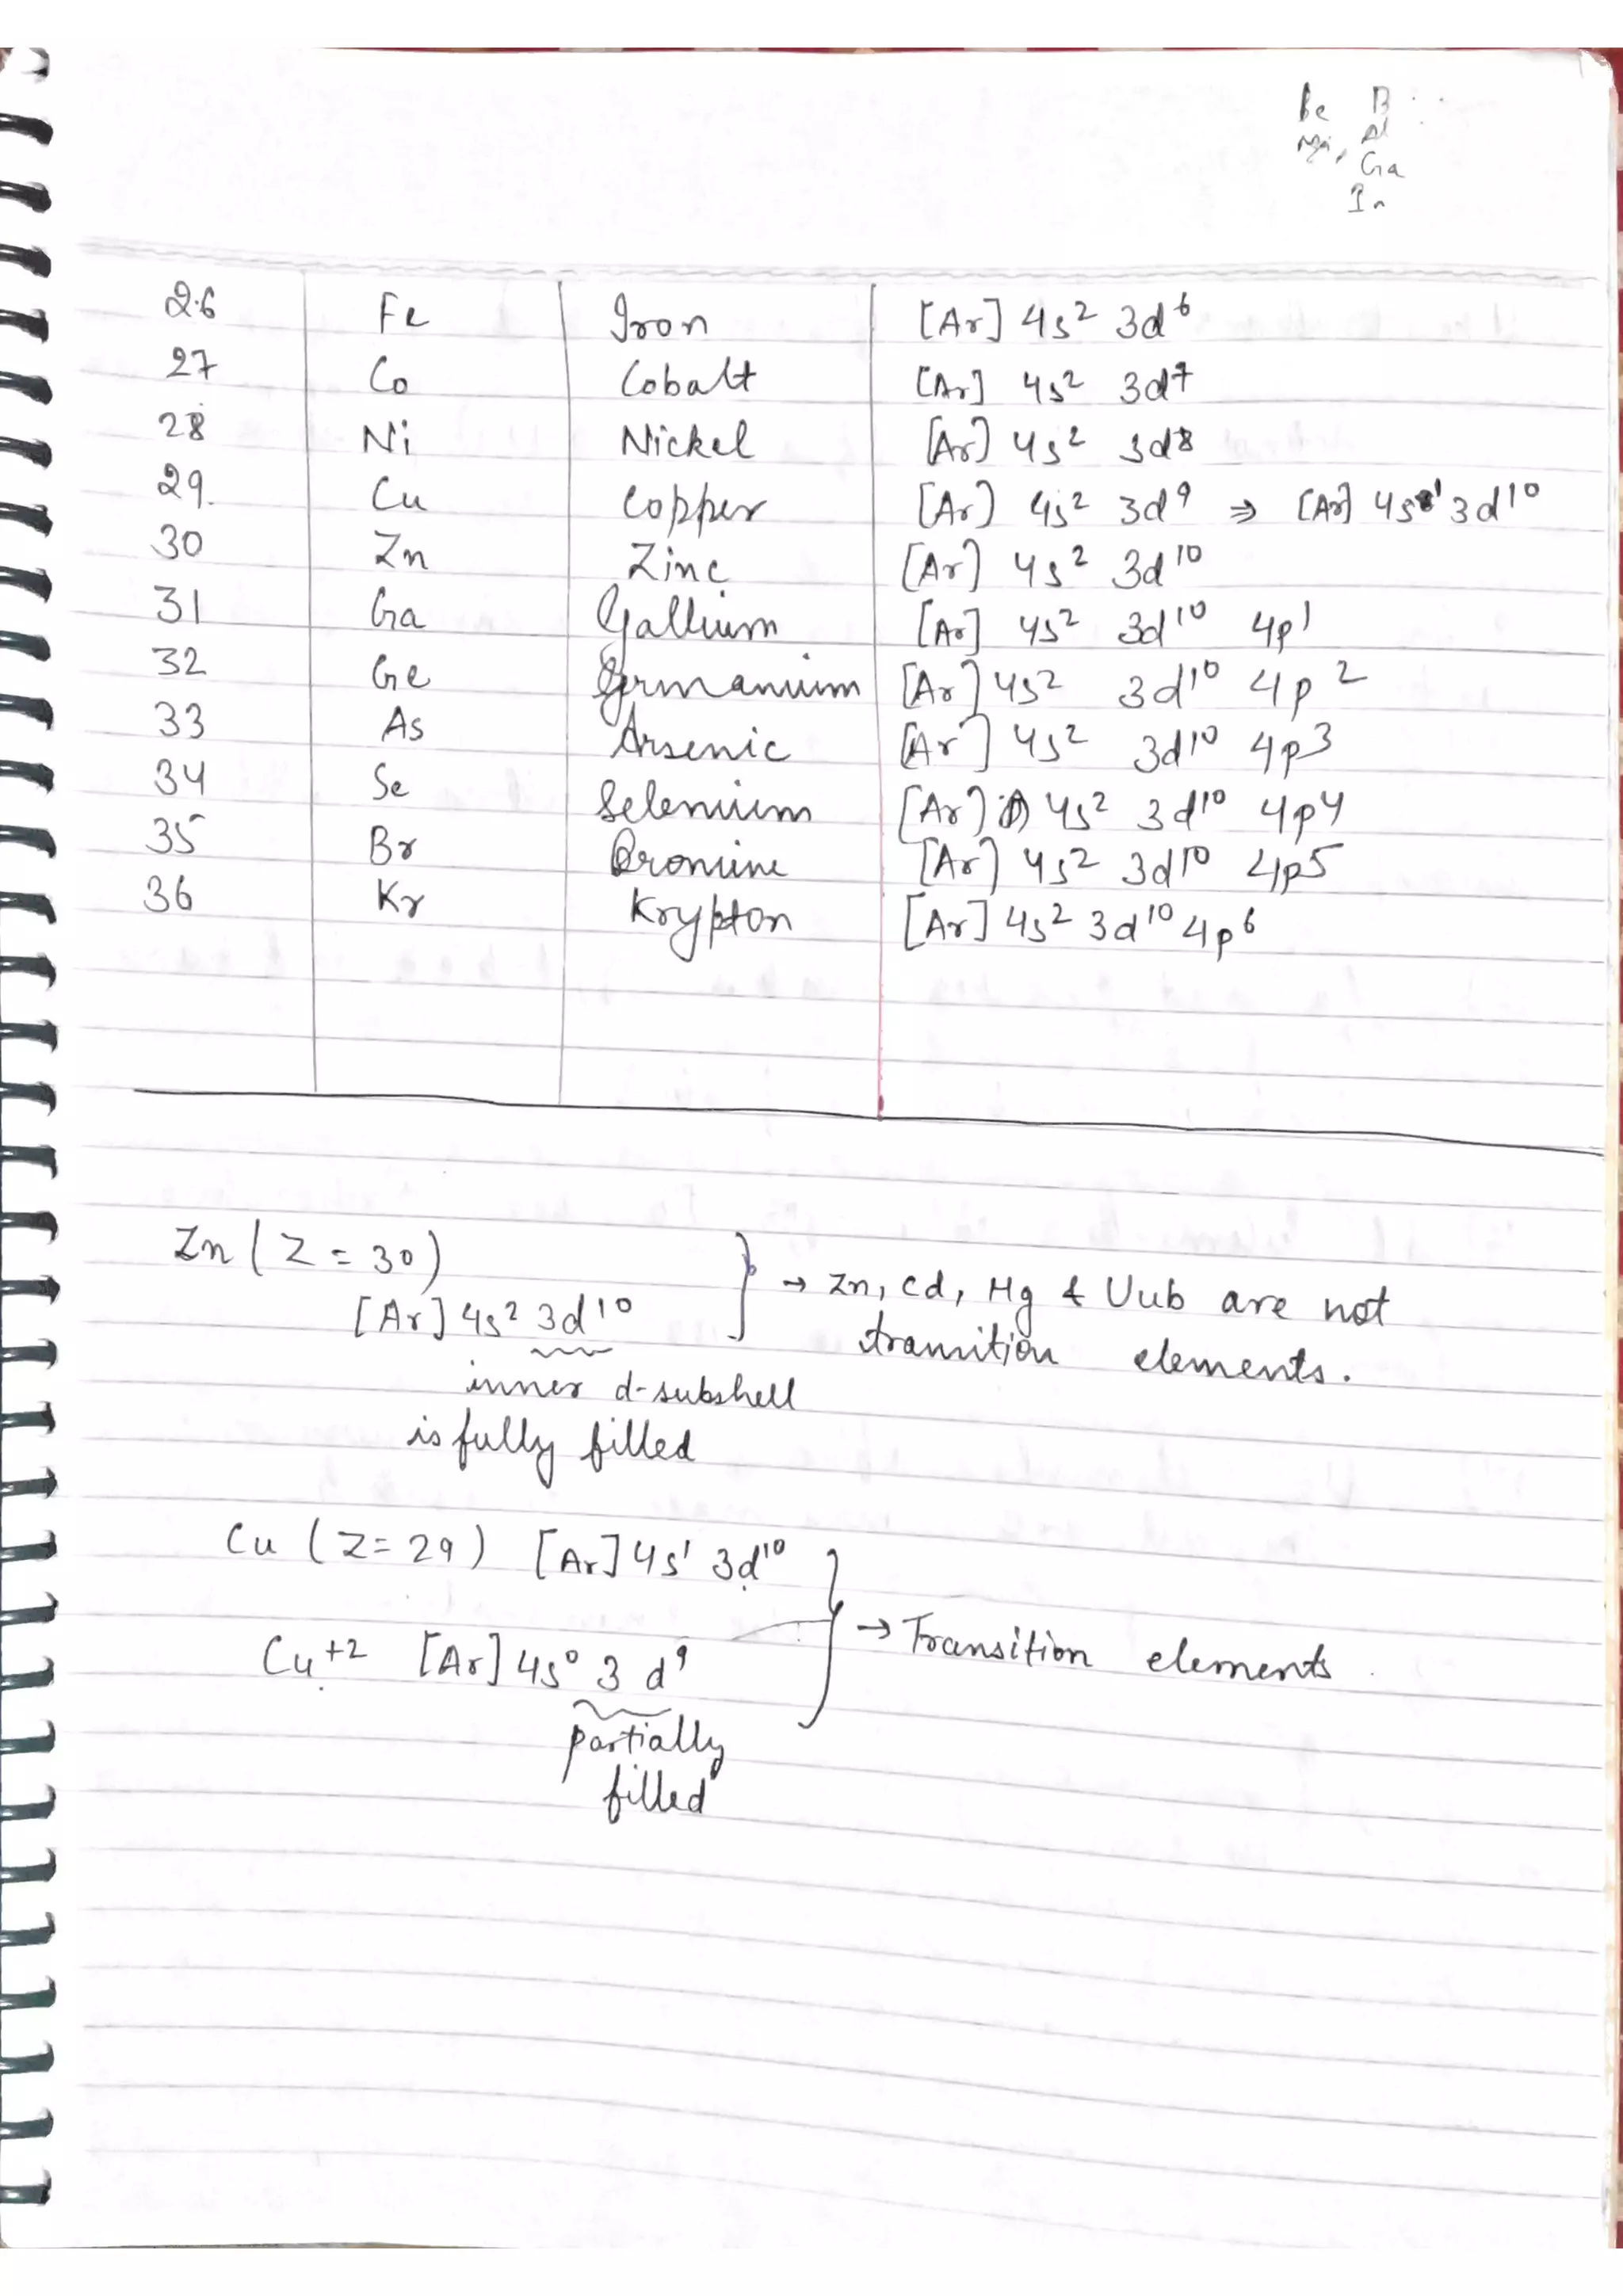 Be B
Mg, Al
Ga
In
26 Fe Iron [Ar] 4s² 3d⁶
27 Co Cobalt [Ar] 4s² 3d⁷
28 Ni Nickel [Ar] 4s² 3d⁸
29. Cu Copper [Ar] 4s² 3d⁹ ⇒ [Ar] 4s¹ 3d¹⁰
30 Zn Zinc [Ar] 4s² 3d¹⁰
31 Ga Gallium [Ar] 4s² 3d¹⁰ 4p¹
32 Ge Germanium [Ar] 4s² 3d¹⁰ 4p²
33 As Arsenic [Ar] 4s² 3d¹⁰ 4p³
34 Se Selenium [Ar] 4s² 3d¹⁰ 4p⁴
35 Br Bromine [Ar] 4s² 3d¹⁰ 4p⁵
36 Kr Krypton [Ar] 4s² 3d¹⁰ 4p⁶
Zn (Z = 30)
[Ar] 4s² 3d¹⁰
inner d-subshell
is fully filled
→ Zn, Cd, Hg & Uub are not
transition elements.
Cu (Z = 29) [Ar] 4s¹ 3d¹⁰
Cu⁺² [Ar] 4s⁰ 3d⁹
partially
filled
→ Transition elements.